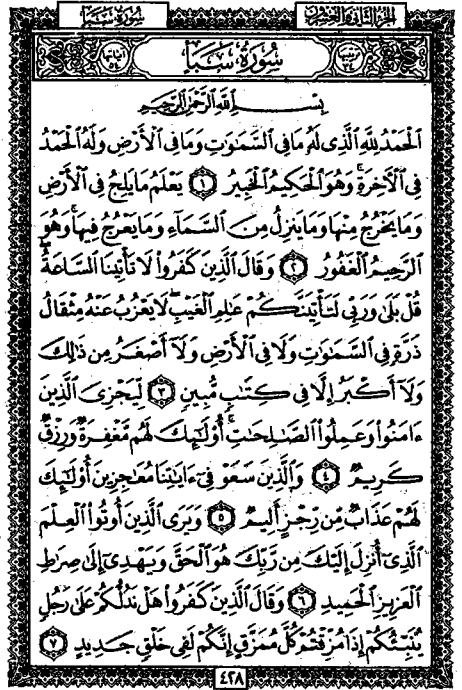 سُورَةُ سَبَإ
الجزء الثاني والعشرون
سُورَةُ سَبَإ
بِسْمِ ٱللَّهِ ٱلرَّحْمَٰنِ ٱلرَّحِيمِ
ٱلْحَمْدُ لِلَّهِ ٱلَّذِى لَهُۥ مَا فِى ٱلسَّمَٰوَٰتِ وَمَا فِى ٱلْأَرْضِ وَلَهُ ٱلْحَمْدُ
فِى ٱلْأَخِرَةِ ۚ وَهُوَ ٱلْحَكِيمُ ٱلْخَبِيرُ ١ يَعْلَمُ مَا يَلِجُ فِى ٱلْأَرْضِ
وَمَا يَخْرُجُ مِنْهَا وَمَا يَنزِلُ مِنَ ٱلسَّمَآءِ وَمَا يَعْرُجُ فِيهَا ۚ وَهُوَ
ٱلرَّحِيمُ ٱلْغَفُورُ ٢ وَقَالَ ٱلَّذِينَ كَفَرُوا۟ لَا تَأْتِينَا ٱلسَّاعَةُ ۖ
قُلْ بَلَىٰ وَرَبِّى لَتَأْتِيَنَّكُمْ عَٰلِمِ ٱلْغَيْبِ ۖ لَا يَعْزُبُ عَنْهُ مِثْقَالُ
ذَرَّةٍ فِى ٱلسَّمَٰوَٰتِ وَلَا فِى ٱلْأَرْضِ وَلَآ أَصْغَرُ مِن ذَٰلِكَ
وَلَآ أَكْبَرُ إِلَّا فِى كِتَٰبٍ مُّبِينٍ ٣ لِّيَجْزِىَ ٱلَّذِينَ
ءَامَنُوا۟ وَعَمِلُوا۟ ٱلصَّٰلِحَٰتِ ۚ أُو۟لَٰٓئِكَ لَهُم مَّغْفِرَةٌ وَرِزْقٌ
كَرِيمٌ ٤ وَٱلَّذِينَ سَعَوْ فِىٓ ءَايَٰتِنَا مُعَٰجِزِينَ أُو۟لَٰٓئِكَ
لَهُمْ عَذَابٌ مِّن رِّجْزٍ أَلِيمٌ ٥ وَيَرَى ٱلَّذِينَ أُوتُوا۟ ٱلْعِلْمَ
ٱلَّذِىٓ أُنزِلَ إِلَيْكَ مِن رَّبِّكَ هُوَ ٱلْحَقَّ وَيَهْدِىٓ إِلَىٰ صِرَٰطِ
ٱلْعَزِيزِ ٱلْحَمِيدِ ٦ وَقَالَ ٱلَّذِينَ كَفَرُوا۟ هَلْ نَدُلُّكُمْ عَلَىٰ رَجُلٍ
يُنَبِّئُكُمْ إِذَا مُزِّقْتُمْ كُلَّ مُمَزَّقٍ إِنَّكُمْ لَفِى خَلْقٍ جَدِيدٍ ٧
٤٢٨